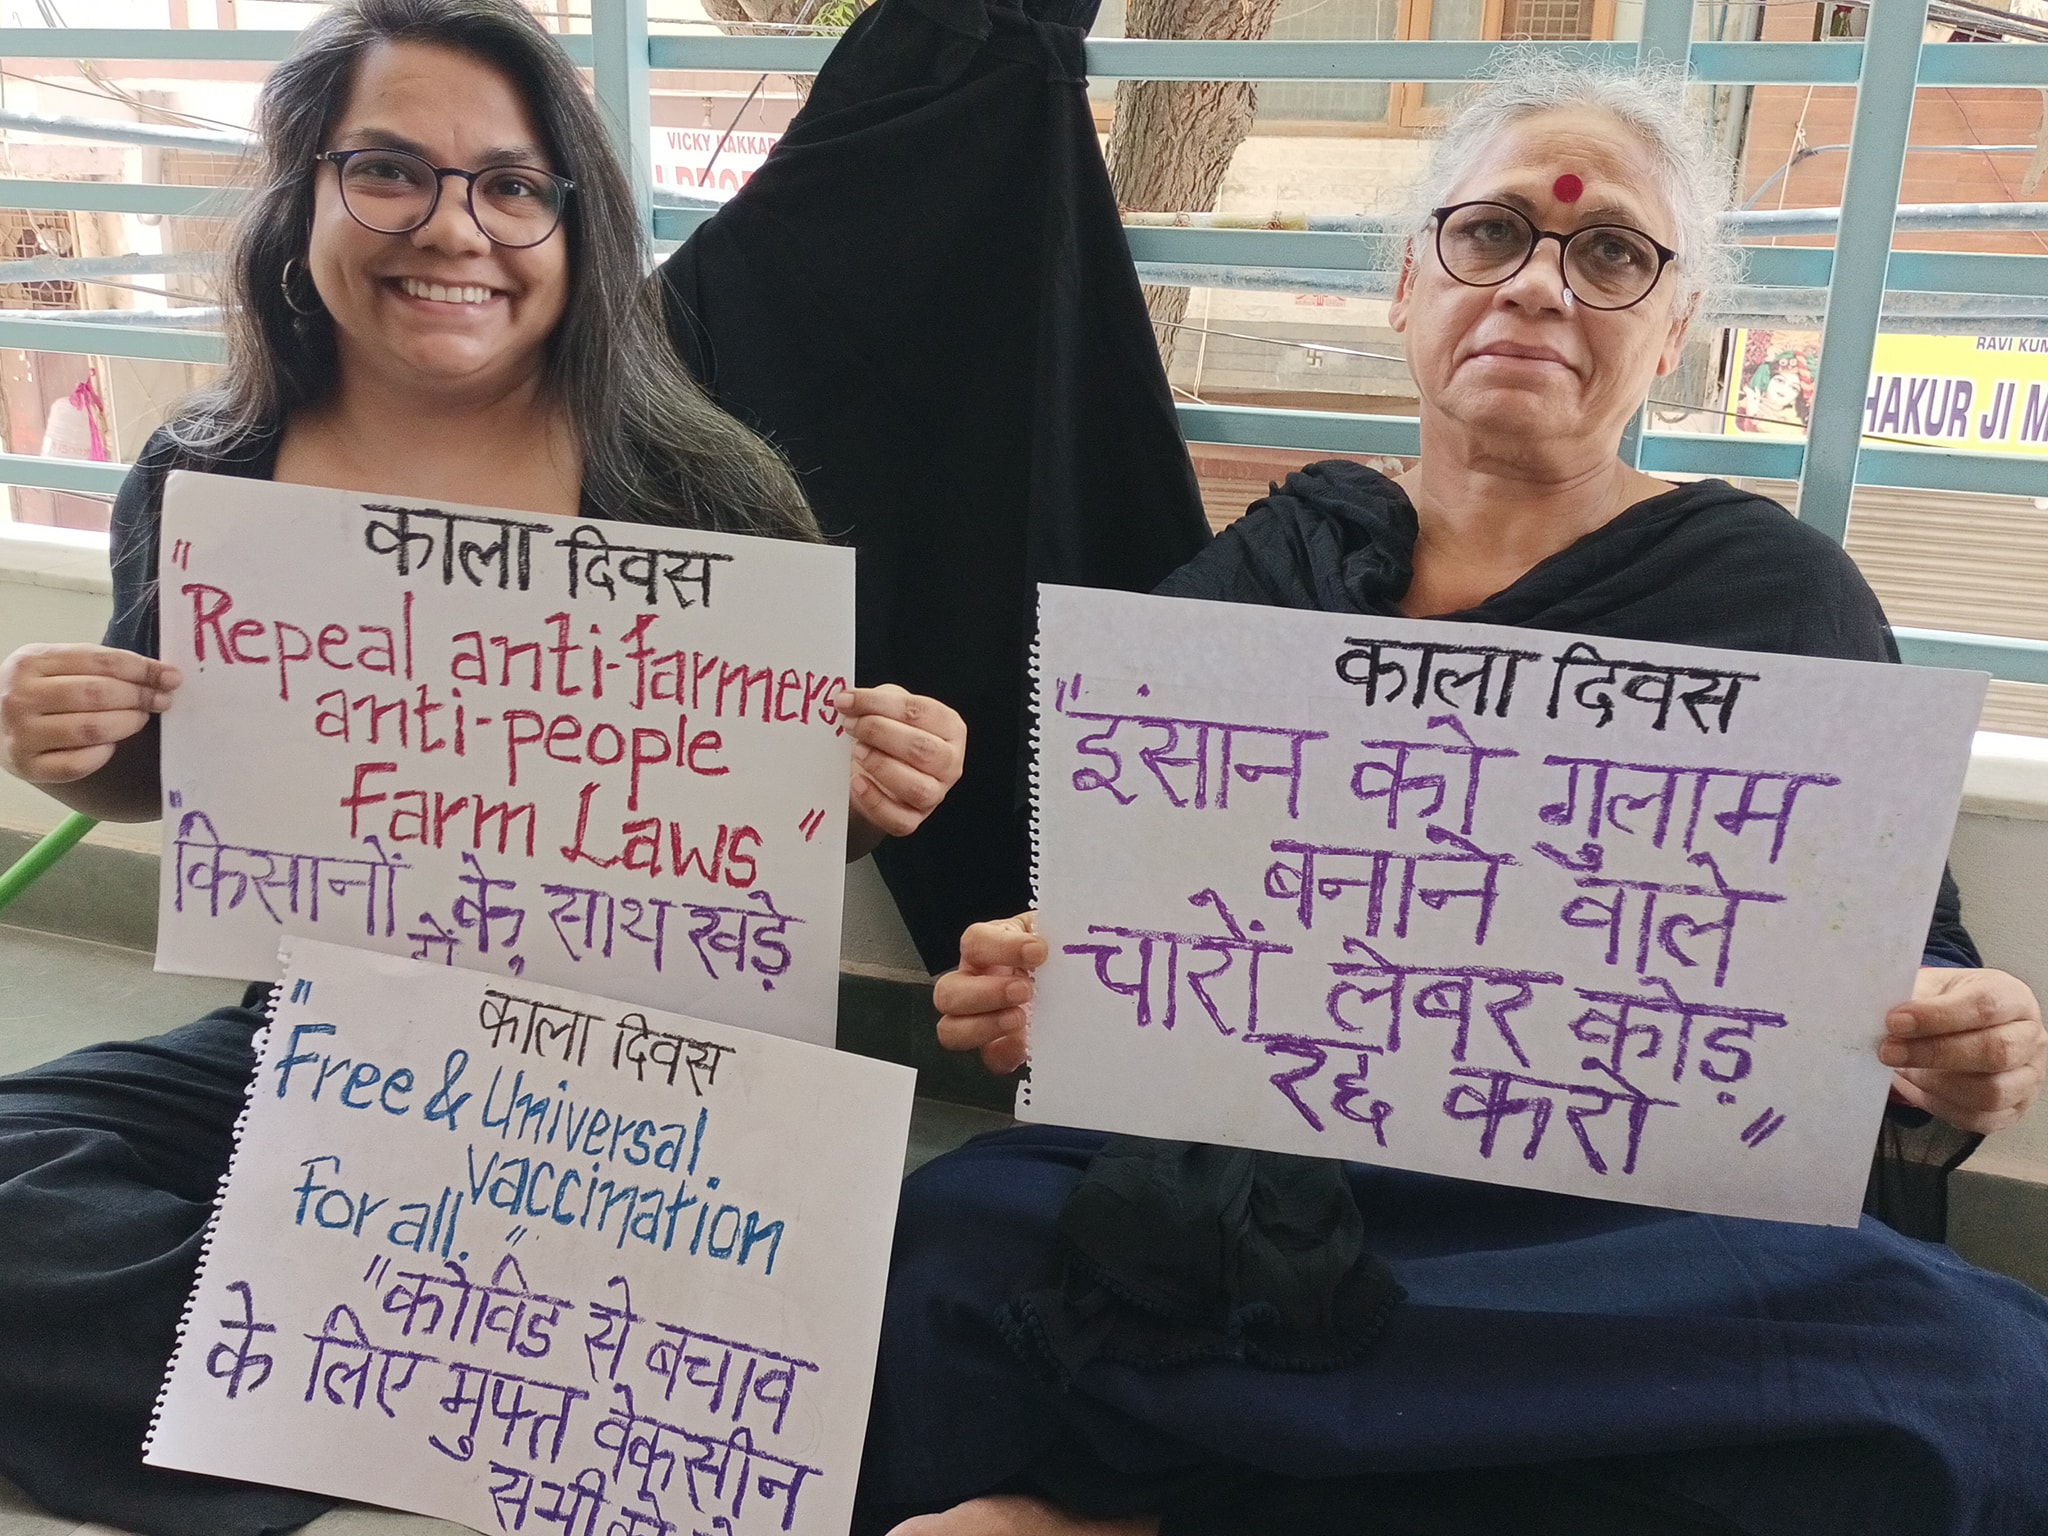 VICKY KAKKAR
RAVI KUM
HAKUR JI M
काला दिवस
"Repeal anti-farmers,
anti-people
Farm Laws"
"किसानों के साथ खड़े
काला दिवस
"Free & Universal
vaccination
for all."
"कोविड से बचाव
के लिए मुफ्त वेकसीन
सभी को
काला दिवस
"इंसान को गुलाम
बनाने वाले
चारों लेबर कोड़
रद्द करो"